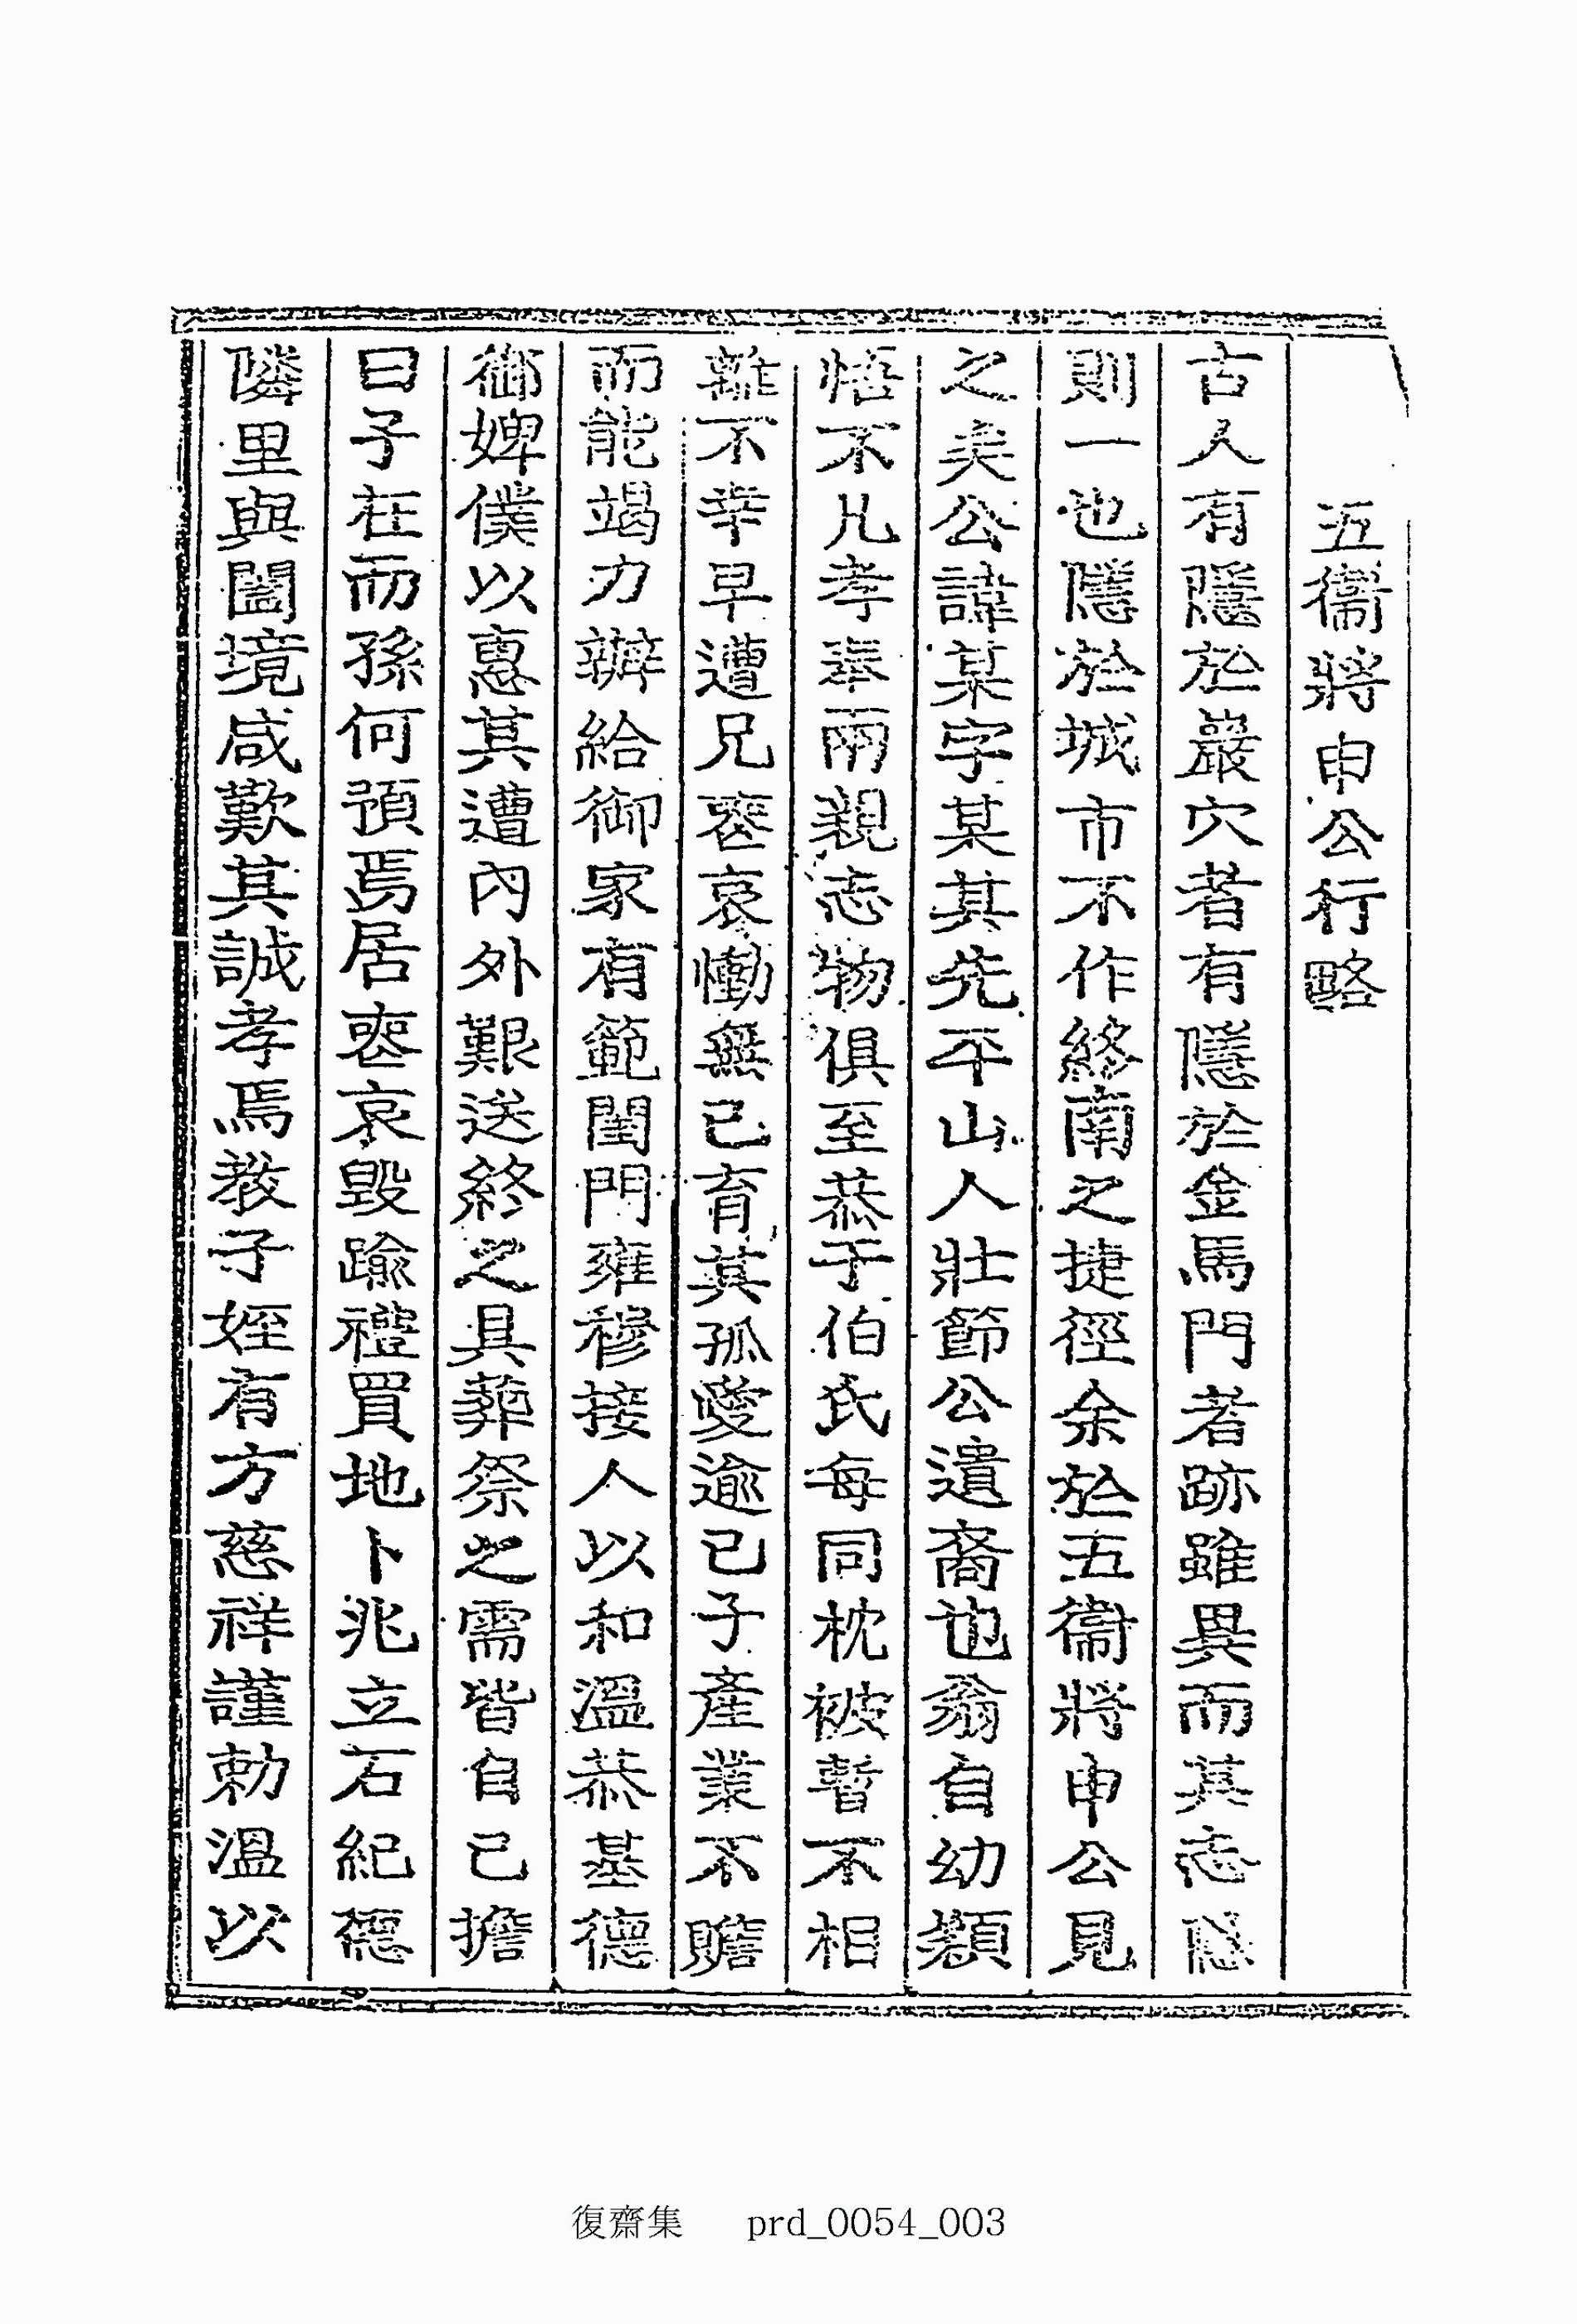 五衛將申公行略
古人有隱於巖穴者有隱於金馬門者跡雖異而其志隱
則一也隱於城市不作終南之捷徑余於五衛將申公見
之矣公諱某字某其先平山人壯節公遺裔也翁自幼穎
悟不凡孝奉兩親志物俱至恭于伯氏每同枕被暫不相
離不幸早遭兄喪哀慟無已育其孤愛逾己子產業不贍
而能竭力辦給御家有範閨門雍穆接人以和溫恭基德
御婢僕以惠其遭內外艱送終之具葬祭之需皆自己擔
曰子在而孫何預焉居喪哀毀踰禮買地卜兆立石紀德
隣里與闔境咸歎其誠孝焉教子姪有方慈祥謹勅溫以
復齋集 prd_0054_003